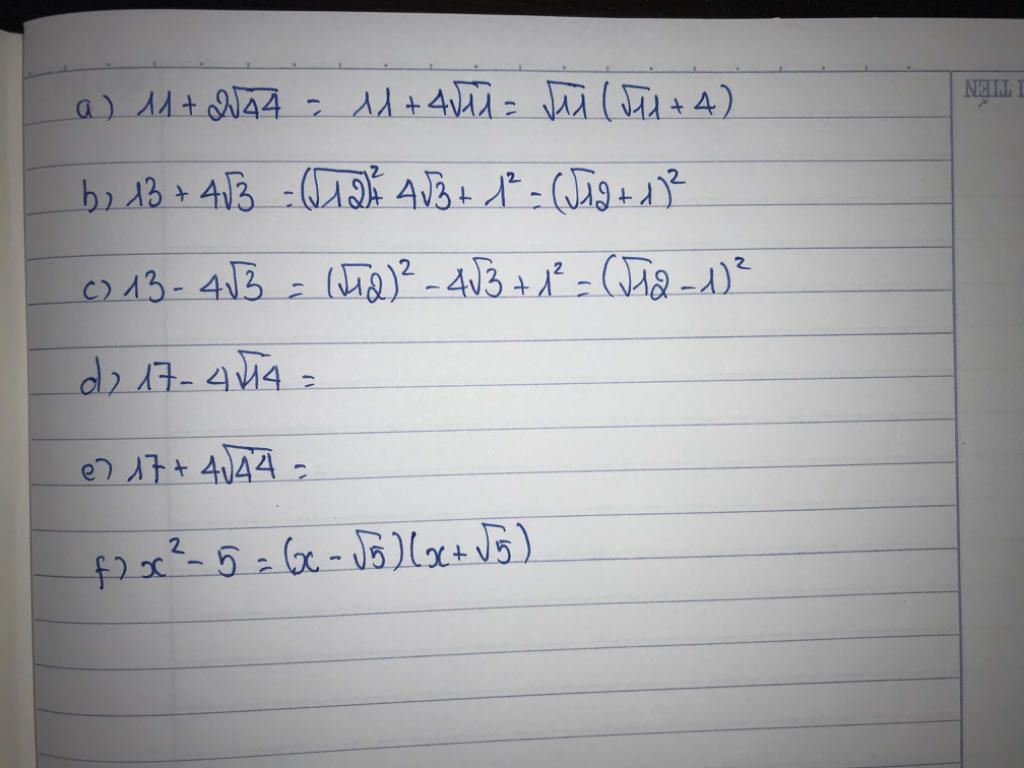 a) 11 + 2√44 = 11 + 4√11 = √11 (√11 + 4)
I TIEN
b) 13 + 4√3 = (√12)² + 4√3 + 1² = (√12 + 1)²
c) 13 - 4√3 = (√12)² - 4√3 + 1² = (√12 - 1)²
d) 17 - 4√14 =
e) 17 + 4√44 =
f) x² - 5 = (x - √5)(x + √5)